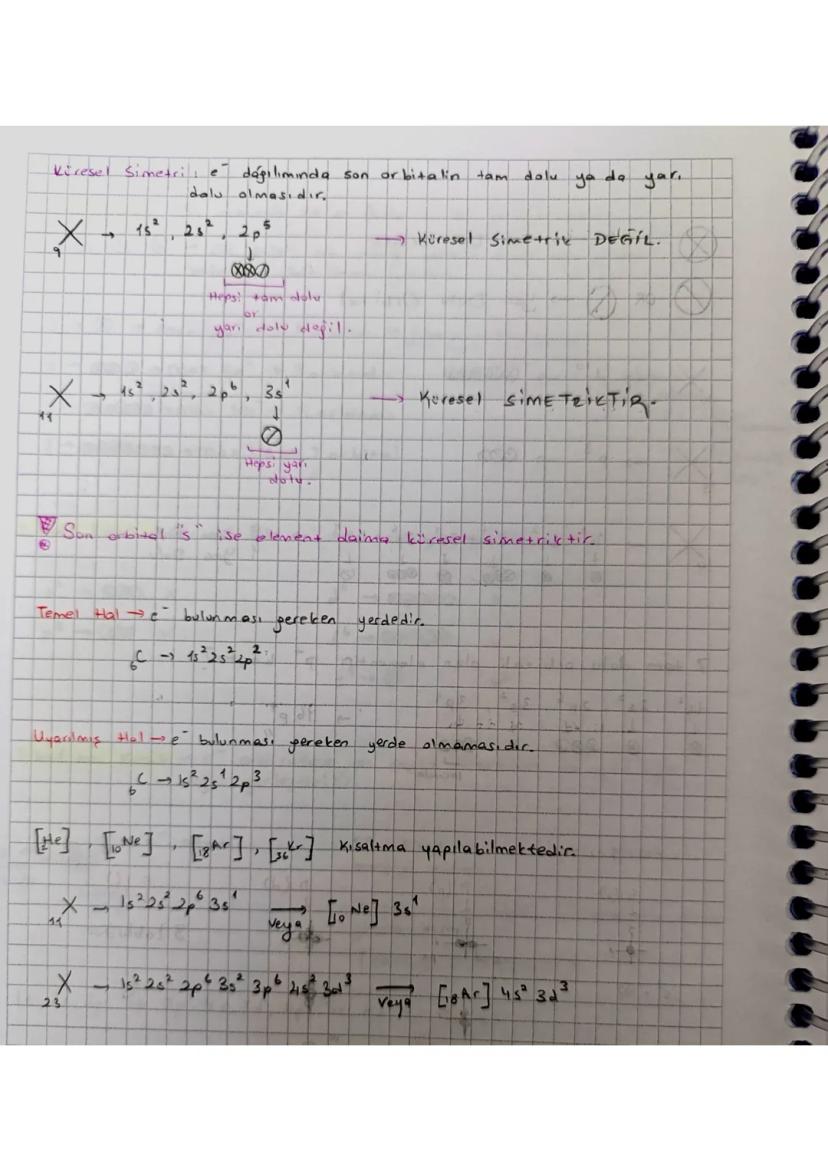 Küresel Simetri: e⁻ dağılımında son orbitalin tam dolu ya da yarı
dolu olmasıdır.
₉X → 1s², 2s², 2p⁵ → Küresel Simetrik DEĞİL.
↓
Hepsi tam dolu
or
yarı dolu değil.
₁₁X → 1s², 2s², 2p⁶, 3s¹ → Küresel SİMETRİKTİR.
↓
Hepsi yarı
dolu.
Son orbital "s" ise element daima küresel simetriktir.
Temel Hal → e⁻ bulunması gereken yerdedir.
₆C → 1s² 2s² 2p²
Uyarılmış Hal → e⁻ bulunması gereken yerde olmamasıdır.
₆C → 1s² 2s¹ 2p³
[₂He], [₁₀Ne], [₁₈Ar], [₃₆Kr] Kısaltma yapılabilmektedir.
₁₁X → 1s² 2s² 2p⁶ 3s¹ → veya [₁₀Ne] 3s¹
₂₃X → 1s² 2s² 2p⁶ 3s² 3p⁶ 4s² 3d³ → veya [₁₈Ar] 4s² 3d³